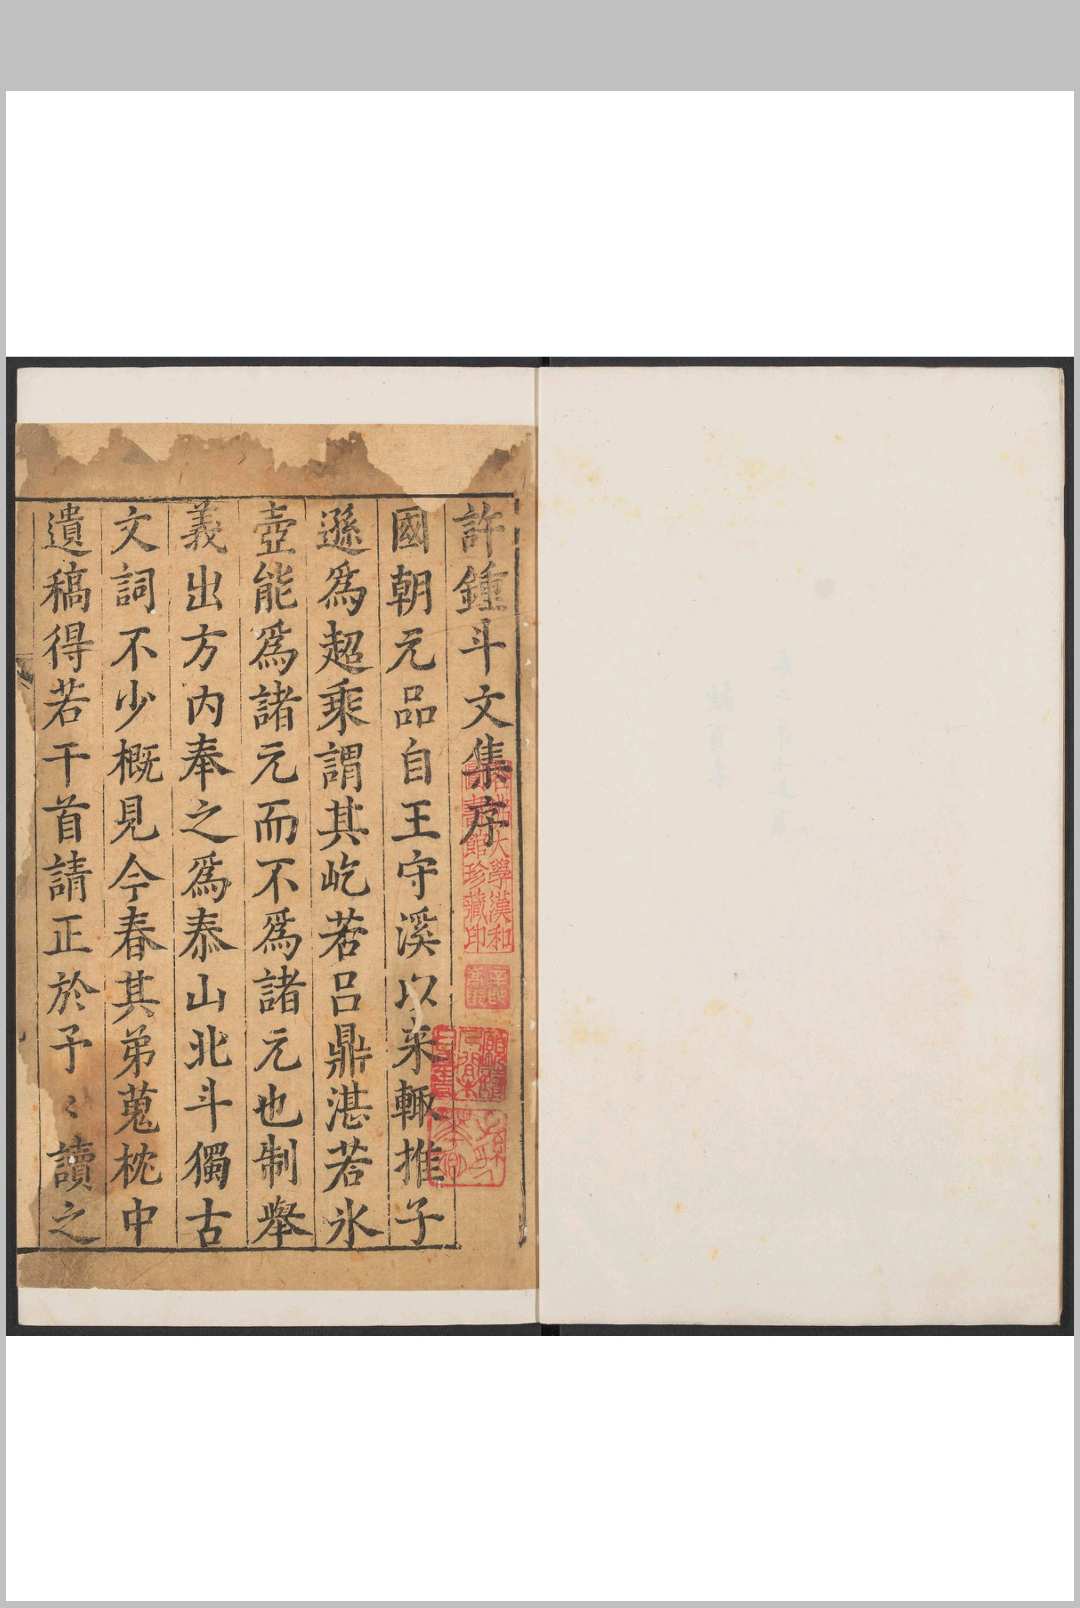 許鍾斗文集序
國朝元品自王守溪以來輙推子
遜爲超乘謂其屹若呂鼎湛若氷
壺能爲諸元而不爲諸元也制舉
義出方内奉之爲泰山北斗獨古
文詞不少概見今春其弟蒐枕中
遺稿得若干首請正於予〻讀之
大學漢和
圖書館珍藏印